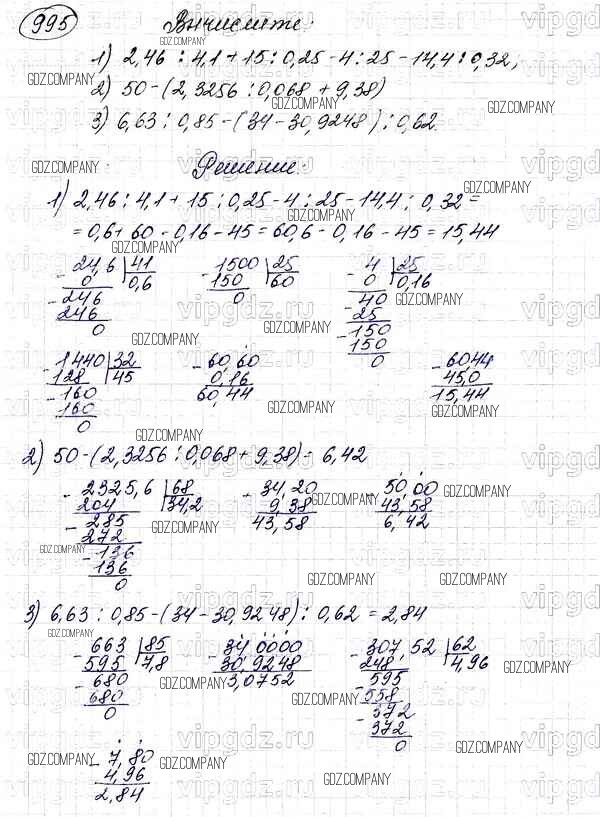 995 Вычислите:
1) 2,46 : 4,1 + 15 : 0,25 - 4 : 25 - 14,4 : 0,32;
2) 50 - (2,3256 : 0,068 + 9,38)
3) 6,63 : 0,85 - (34 - 30,9248) : 0,62.
Решение:
1) 2,46 : 4,1 + 15 : 0,25 - 4 : 25 - 14,4 : 0,32 =
= 0,6 + 60 - 0,16 - 45 = 60,6 - 0,16 - 45 = 15,44
- 24,6 | 41 - 1500 | 25 - 4 | 25
0 | 0,6 150 | 60 0 | 0,16
- 246 0 - 40
246 25
0 - 150
150
0
- 1440 | 32 - 60,60 - 60,44
128 | 45 0,16 45,0
- 160 60,44 15,44
160
0
2) 50 - (2,3256 : 0,068 + 9,38) = 6,42
- 2325,6 | 68 - 34,20 - 50,00
204 | 34,2 9,38 43,58
- 285 43,58 6,42
272
- 136
136
0
3) 6,63 : 0,85 - (34 - 30,9248) : 0,62 = 2,84
- 663 | 85 - 34,0000 - 307,52 | 62
595 | 7,8 30,9248 248 | 4,96
- 680 3,0752 - 595
680 558
0 - 372
372
0
- 7,80
4,96
2,84
GDZ.COMPANY
vipgdz.ru